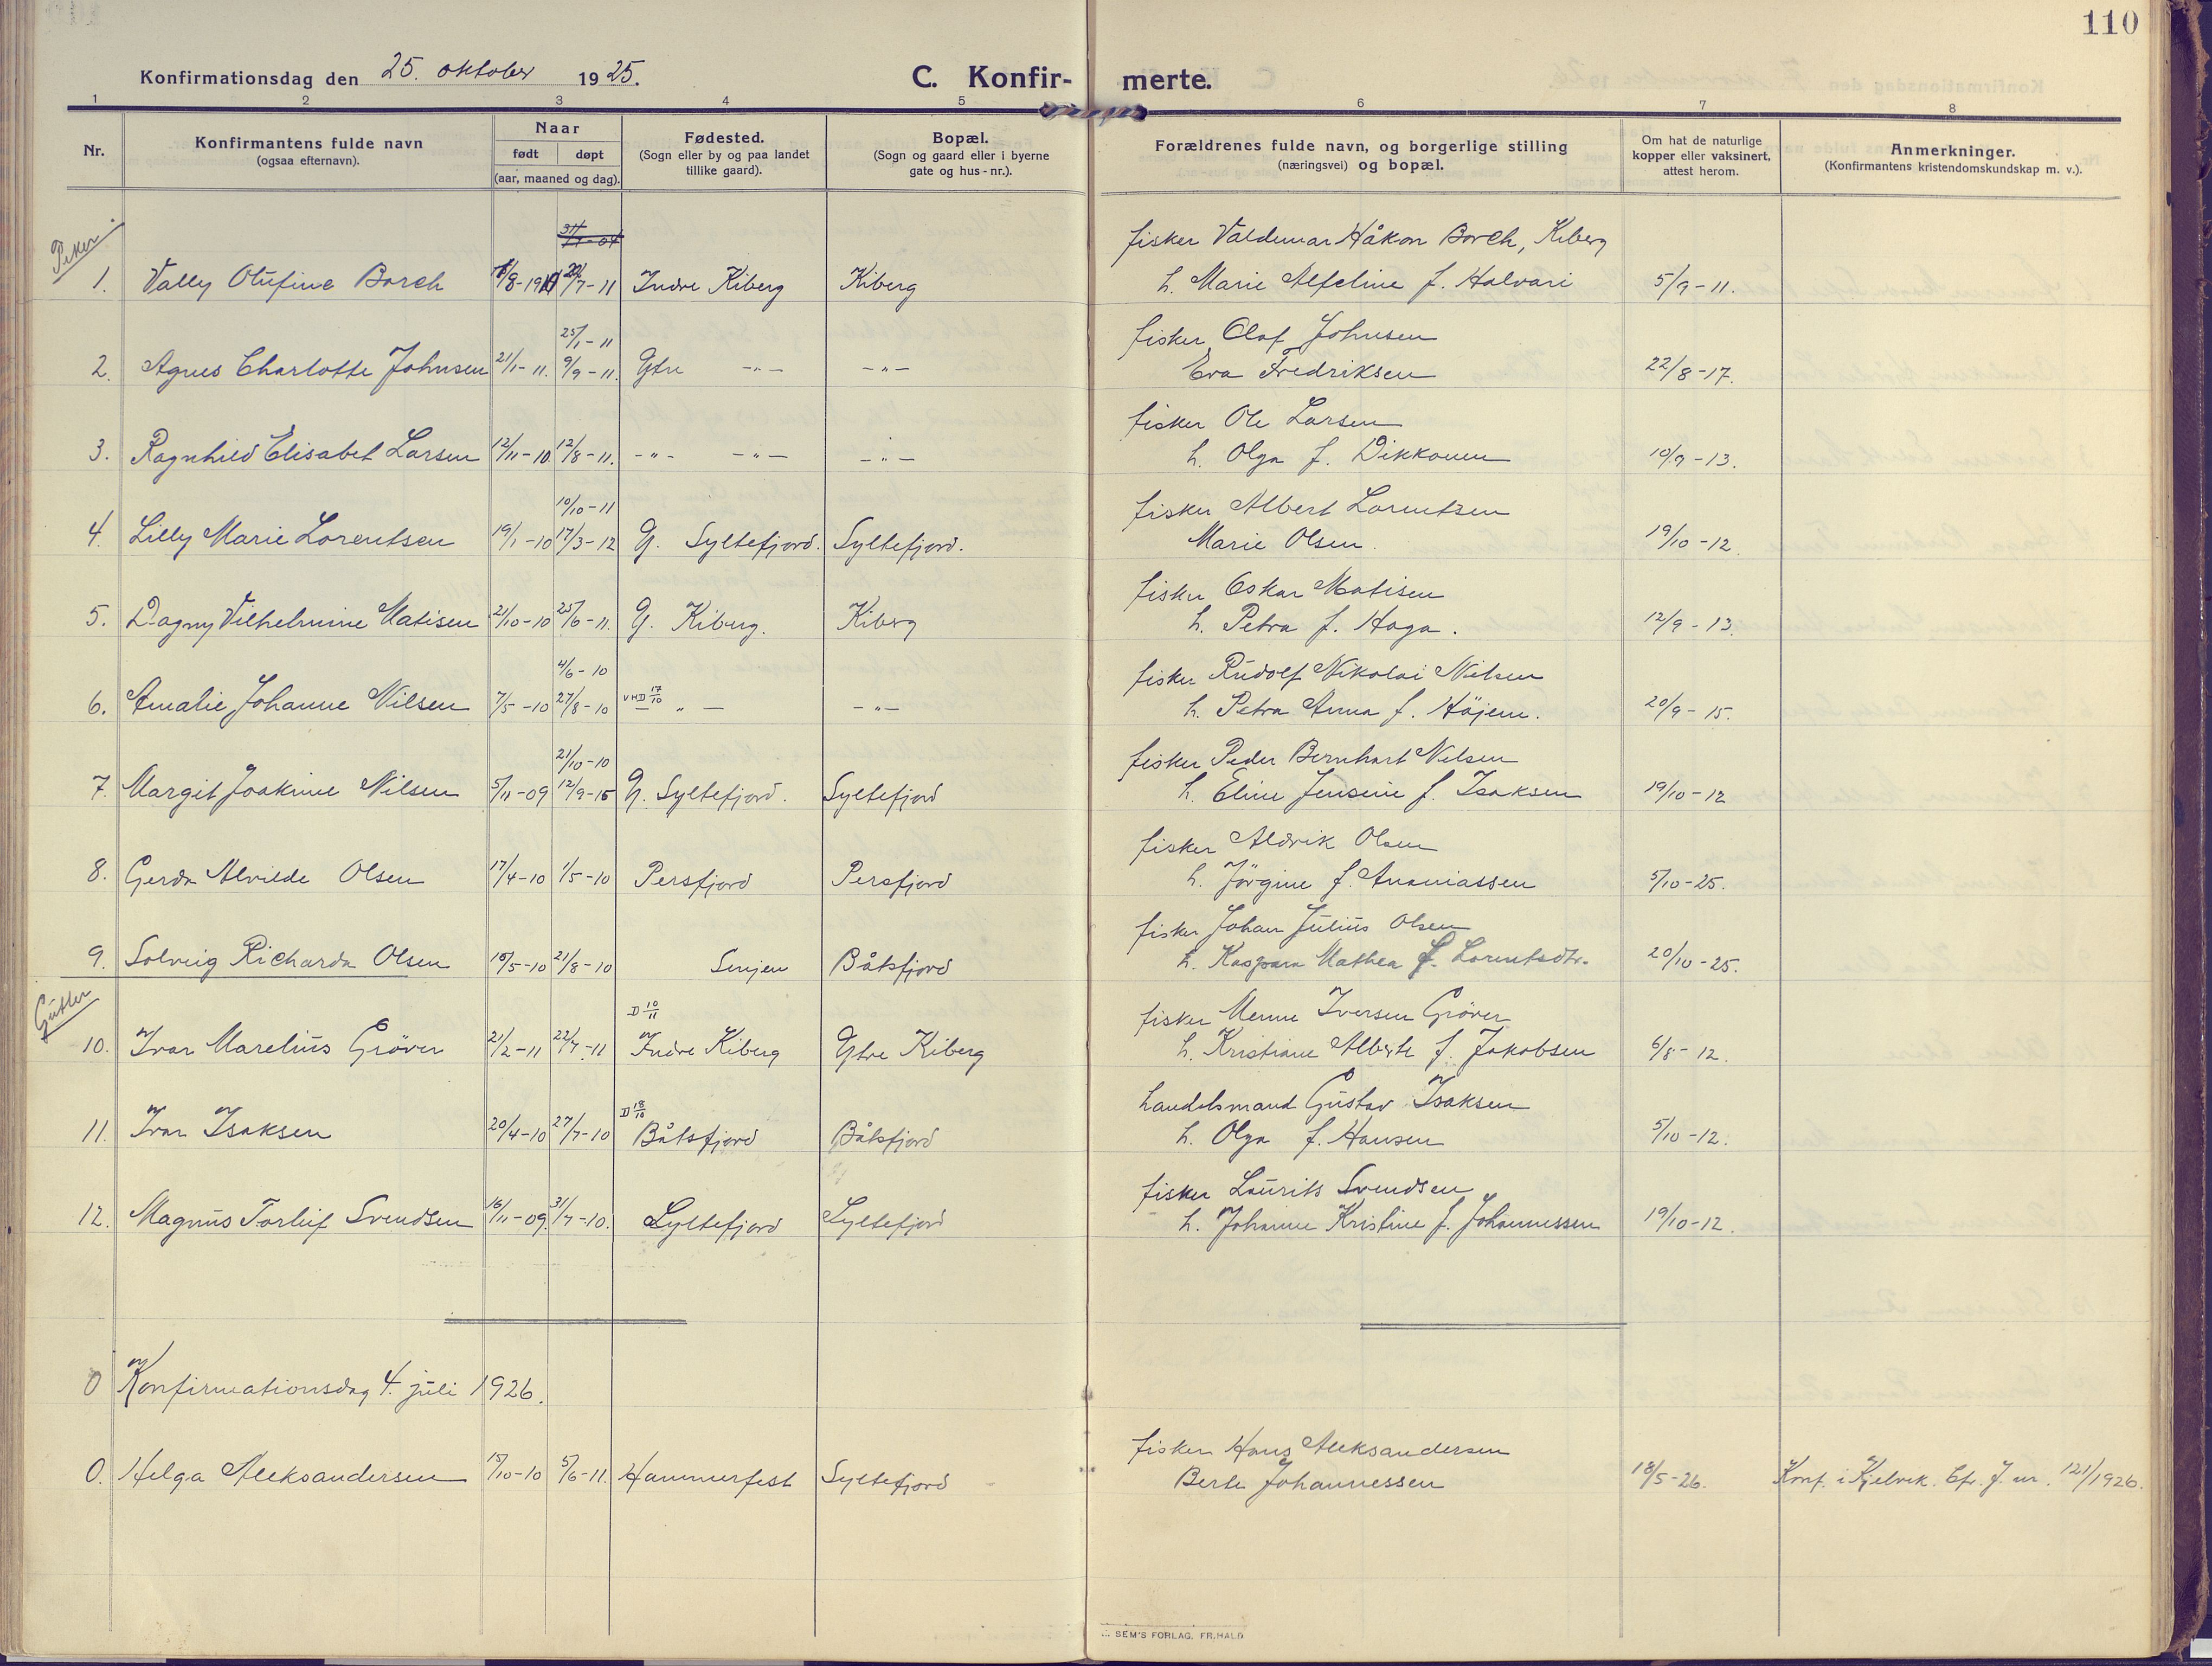 110
Konfirmationsdag den 25. oktober 1925.
C. Konfir- merte.
1 2 3 4 5 6 7 8
Nr.
Konfirmantens fulde navn
(ogsaa efternavn).
Naar
født døpt
(aar, maaned og dag).
Fødested.
(Sogn eller by og paa landet
tillike gaard).
Bopæl.
(Sogn og gaard eller i byerne
gate og hus-nr.).
Forældrenes fulde navn, og borgerlige stilling
(næringsvei) og bopæl.
Om hat de naturlige
kopper eller vaksinert,
attest herom.
Anmerkninger.
(Konfirmantens kristendomskundskap m. v.).
Piker
fisker Valdemar Håkon Borch, Kiberg
1. Vally Olufine Borch /8-1910 20/7-11 Indre Kiberg Kiberg h. Marie Alfeline f. Halvari 5/9-11.
25/1-11 fisker Olaf Johnsen
2. Agnes Charlotte Johnsen 21/1-11. 9/9-11. Ytre -"- -"- Eva Fredriksen 22/8-17.
fisker Ole Larsen
3. Ragnhild Elisabet Larsen 12/11-10 12/8-11. -"- -"- -"- h. Olga f. Dikkonen 10/9-13.
10/10-11 fisker Albert Lorentsen
4. Lilly Marie Lorentsen 19/1-10 17/3-12 Y. Syltefjord. Syltefjord. Marie Olsen. 19/10-12.
fisker Oskar Matisen
5. Dagny Vilhelmine Matisen 21/10-10 25/6-11. Y. Kiberg. Kiberg h. Petra f. Haga. 12/9-13.
4/6-10 fisker Rudolf Nikolai Nilsen
6. Amalie Johanne Nilsen 7/5-10 27/8-10 VHD 17/10 -"- -"- h. Petra Anna f. Höjem. 20/9-15.
21/10-10 fisker Peder Bernhart Nilsen
7. Margit Joakine Nilsen 5/11-09 12/9-15 Y. Syltefjord. Syltefjord h. Eline Jensine f. Isaksen 19/10-12
fisker Aldrik Olsen
8. Gerda Alvilde Olsen 17/4-10 1/5-10 Persfjord Persfjord h. Jörgine f. Ananiassen 5/10-25.
fisker Johan Julius Olsen
9. Solveig Richarda Olsen 16/5-10 21/8-10 Senjen Båtsfjord h. Kaspara Mathea f. Lorentsdtr. 20/10-25.
Gutter
D 10/11 fisker Menne Iversen Gröver
10. Ivar Marelius Gröver 21/2-11 22/7-11 Indre Kiberg Ytre Kiberg h. Kristiane Alberte f. Jakobsen 6/8-12.
D 18/10 handelsmand Gustav Isaksen
11. Ivar Isaksen 20/4-10 27/7-10 Båtsfjord Båtsfjord h. Olga f. Hansen 5/10-12.
fisker Laurits Svendsen
12. Magnus Torleif Svendsen 16/11-09. 31/7-10. Syltefjord Syltefjord h. Johanne Kristine f. Johannessen 19/10-12.
0 Konfirmationsdag 4. juli 1926.
fisker Hans Aleksandersen
0. Helga Aleksandersen 15/10-10 5/6-11. Hammerfest Syltefjord Berte Johannessen 18/5-26. Konf. i Kjelvik. Cfr. J. nr. 121/1926.
SEM'S FORLAG, FR.HALD